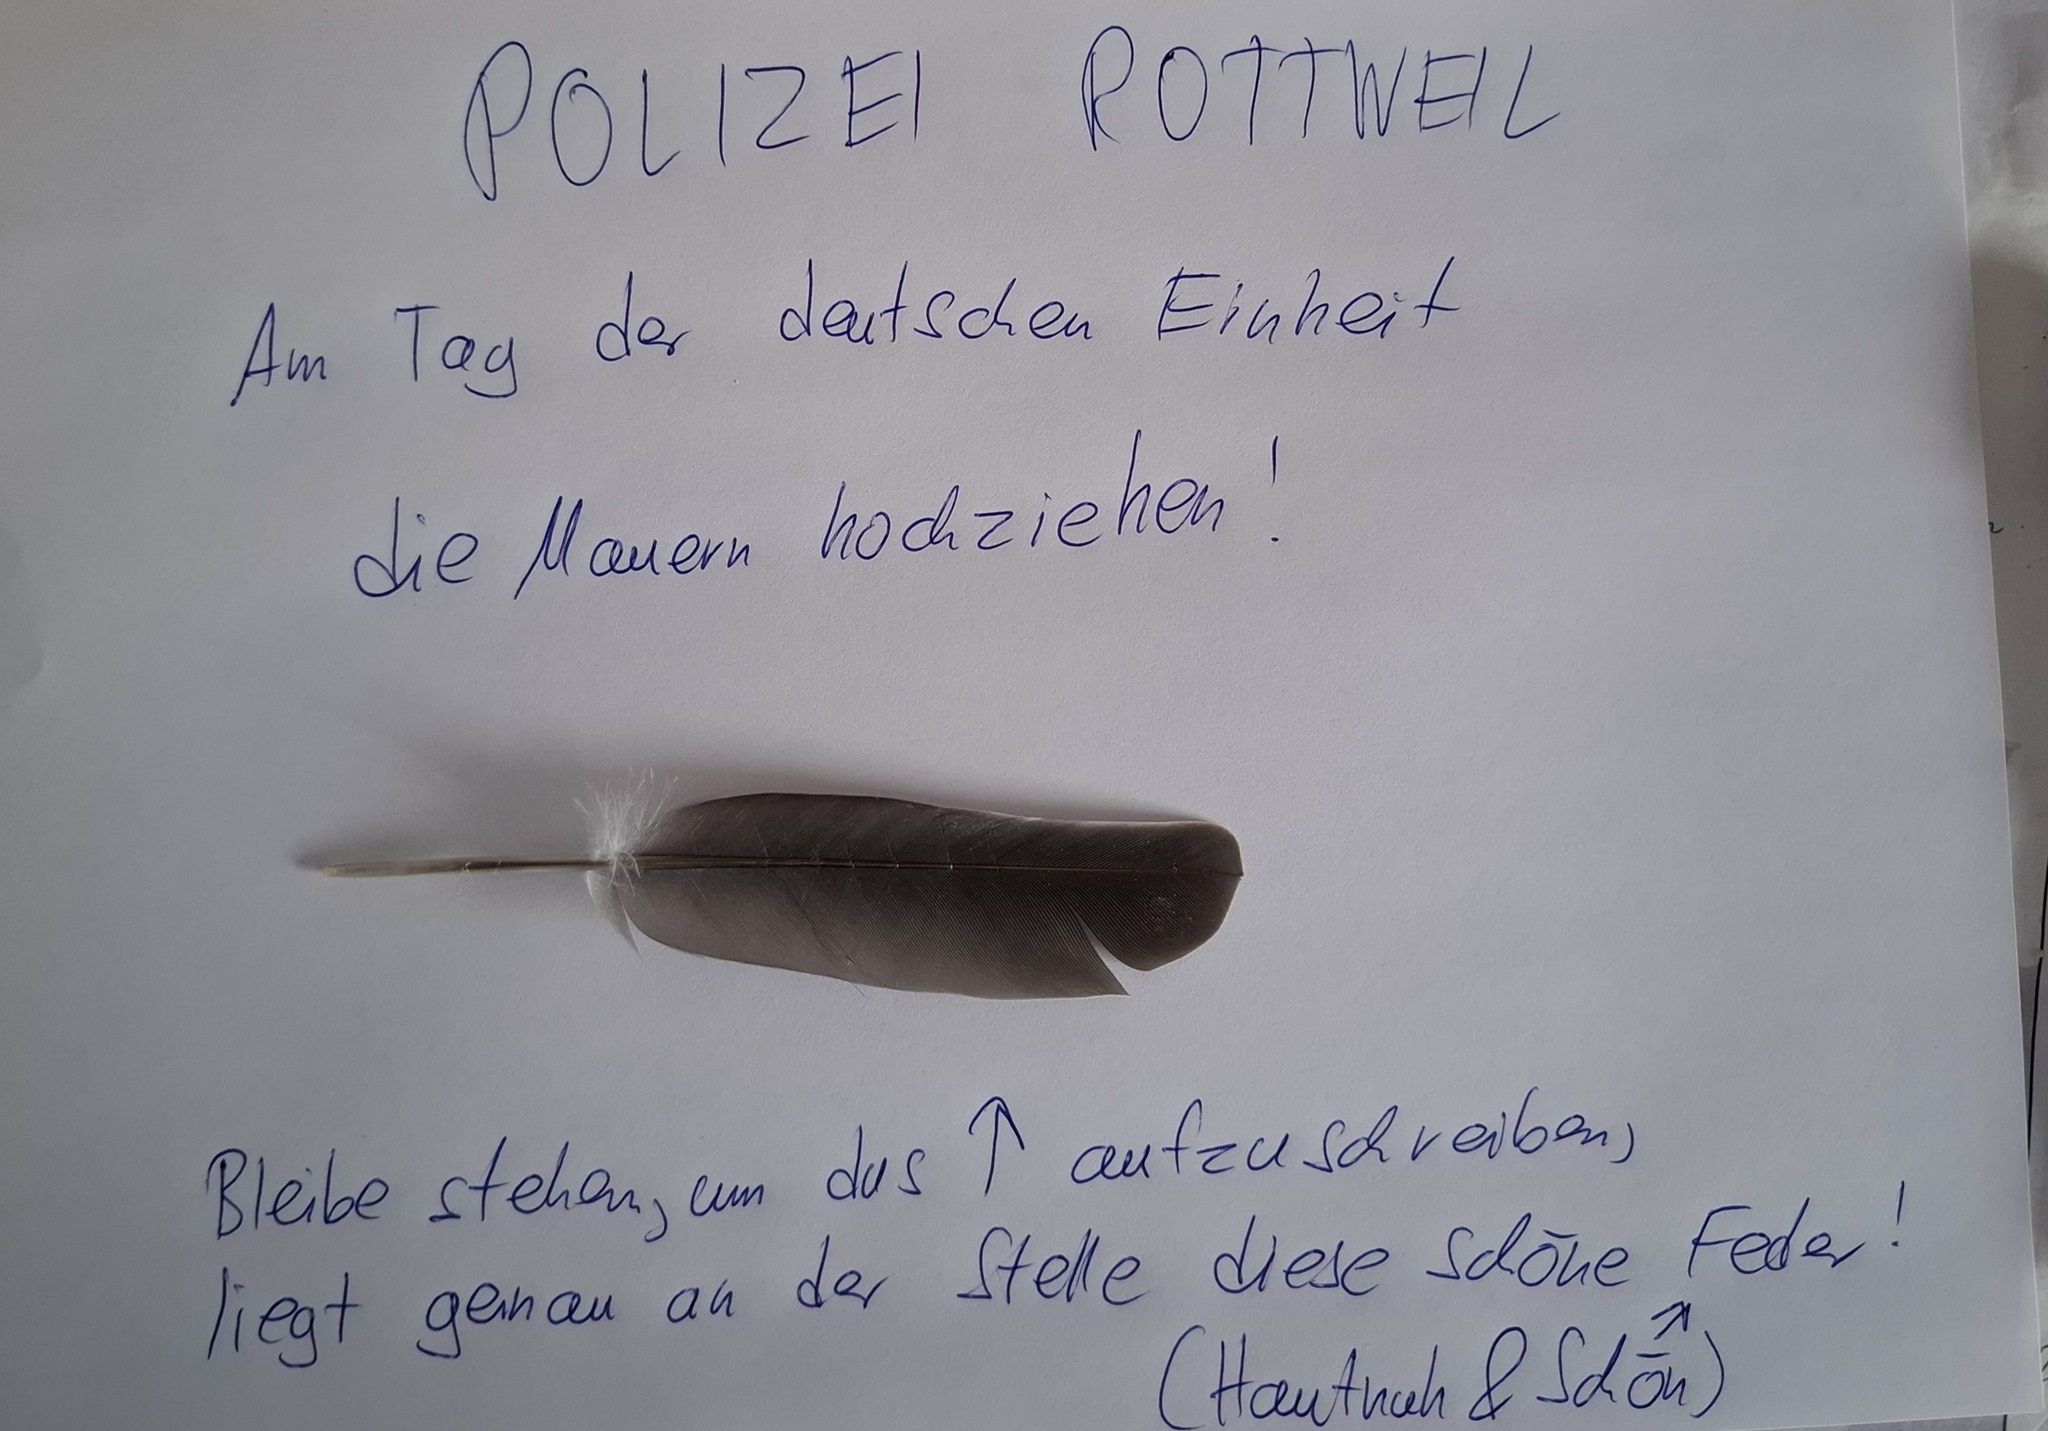 POLIZEI ROTTWEIL
Am Tag der deutschen Einheit
die Mauern hochziehen!
Bleibe stehen, um das ↑ aufzuschreiben,
liegt genau an der Stelle diese schöne Feder!
(Hautnah & Schön)